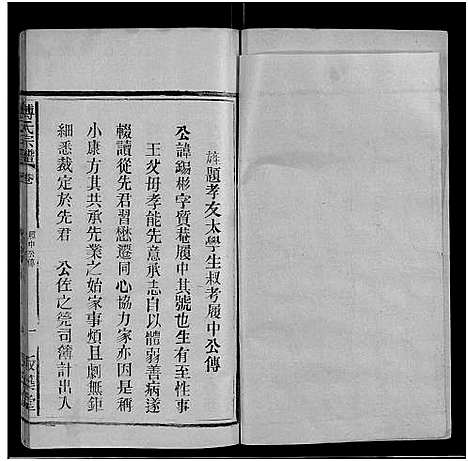 旌題孝友太學生叔考履中公傳
公諱錫彬字質菴履中其號也生有至性事
王父母孝能先意承志自以體弱善病遂
輟讀從先君習懋遷同心協力家亦因是稱
小康方其共承先業之始家事煩且劇無鉅
細悉裁定於先君 公佐之筦司簿計出入
傅氏宗譜 卷
履中公傳
一